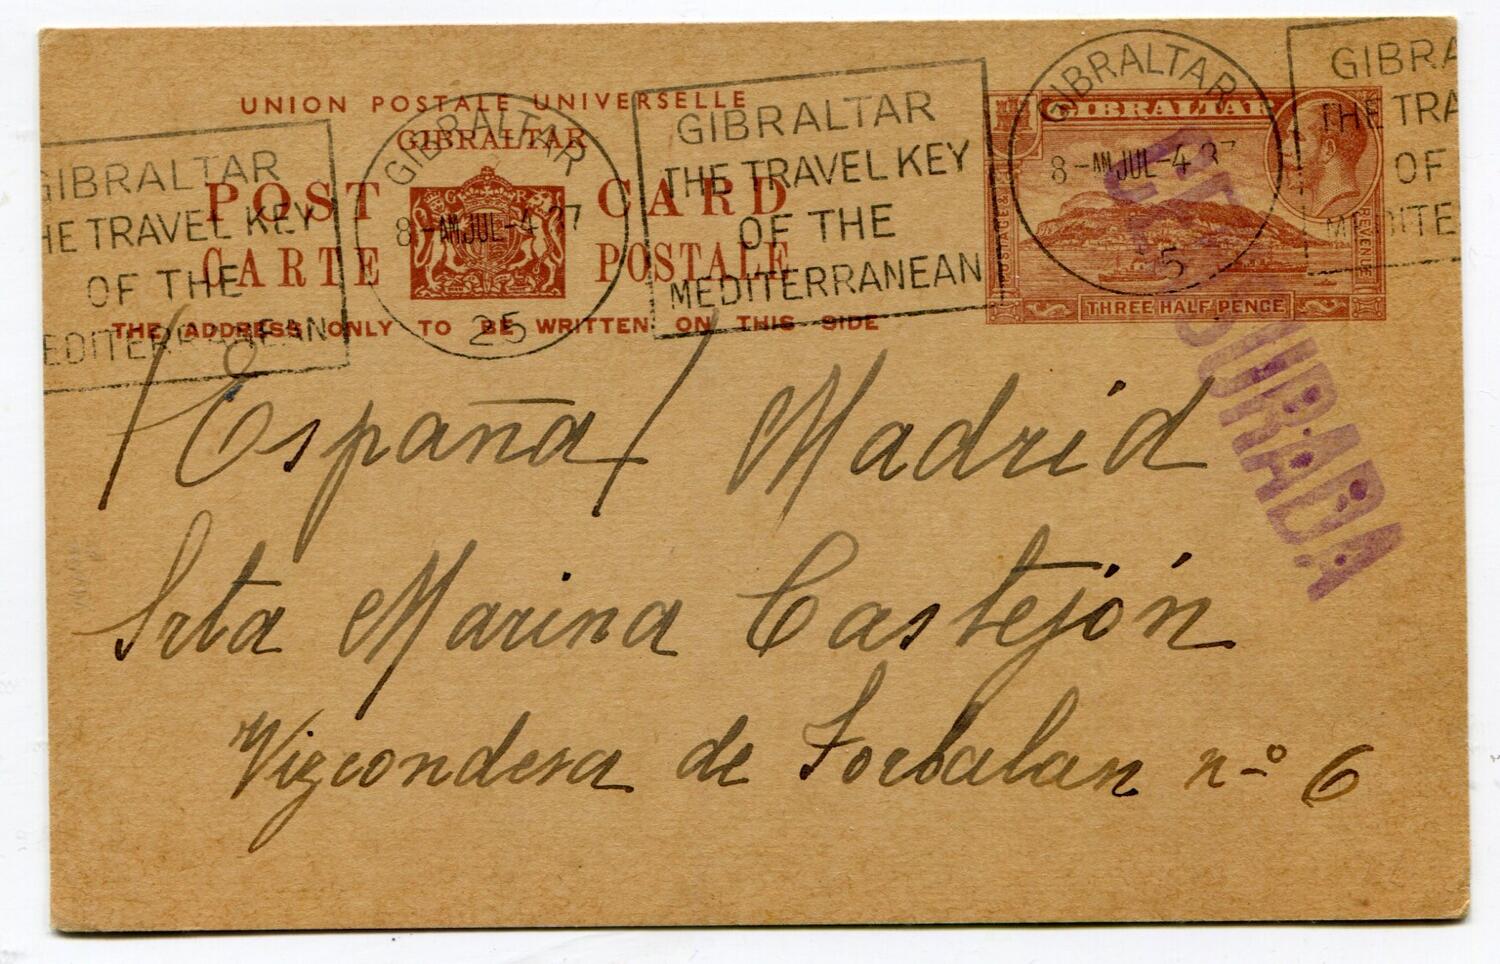 UNION POSTALE UNIVERSELLE
GIBRALTAR
POST CARD
CARTE POSTALE
THE ADDRESS ONLY TO BE WRITTEN ON THIS SIDE
GIBRALTAR
HE TRAVEL KEY
OF THE
EDITERRANEAN
GIBRALTAR
8-AM JUL-4 37
25
GIBRALTAR
THE TRAVEL KEY
OF THE
MEDITERRANEAN
GIBRALTAR
8-AM JUL-4 37
25
GIBRA
THE TRA
OF
MEDITE
GIBRALTAR
POSTAGE &
REVENUE
THREE HALF PENCE
CENSURADA
España Madrid
Srta Marina Castejón
Vizcondesa de Jorbalan nº 6